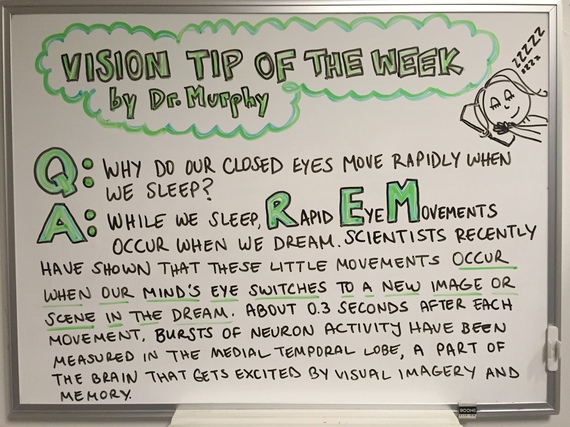 VISION TIP OF THE WEEK
by Dr. Murphy
ZZZZZ
zzzz
Q: WHY DO OUR CLOSED EYES MOVE RAPIDLY WHEN
WE SLEEP?
A: WHILE WE SLEEP, RAPID EYE MOVEMENTS
OCCUR WHEN WE DREAM. SCIENTISTS RECENTLY
HAVE SHOWN THAT THESE LITTLE MOVEMENTS OCCUR
WHEN OUR MIND'S EYE SWITCHES TO A NEW IMAGE OR
SCENE IN THE DREAM. ABOUT 0.3 SECONDS AFTER EACH
MOVEMENT, BURSTS OF NEURON ACTIVITY HAVE BEEN
MEASURED IN THE MEDIAL TEMPORAL LOBE, A PART OF
THE BRAIN THAT GETS EXCITED BY VISUAL IMAGERY AND
MEMORY.